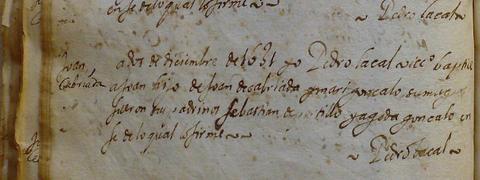 en fe de lo qual lo firme
Pedro lacal
Juan
Cabriada
a dos de diciembre de 1631 yo Pedro lacal vicº baptice
a Juan hijo de Juan de cabriada y mari goncalo su muger
fueron sus padrinos sebastian de portillo y agoda goncalo en
fe de lo qual lo firme
Pedro lacal